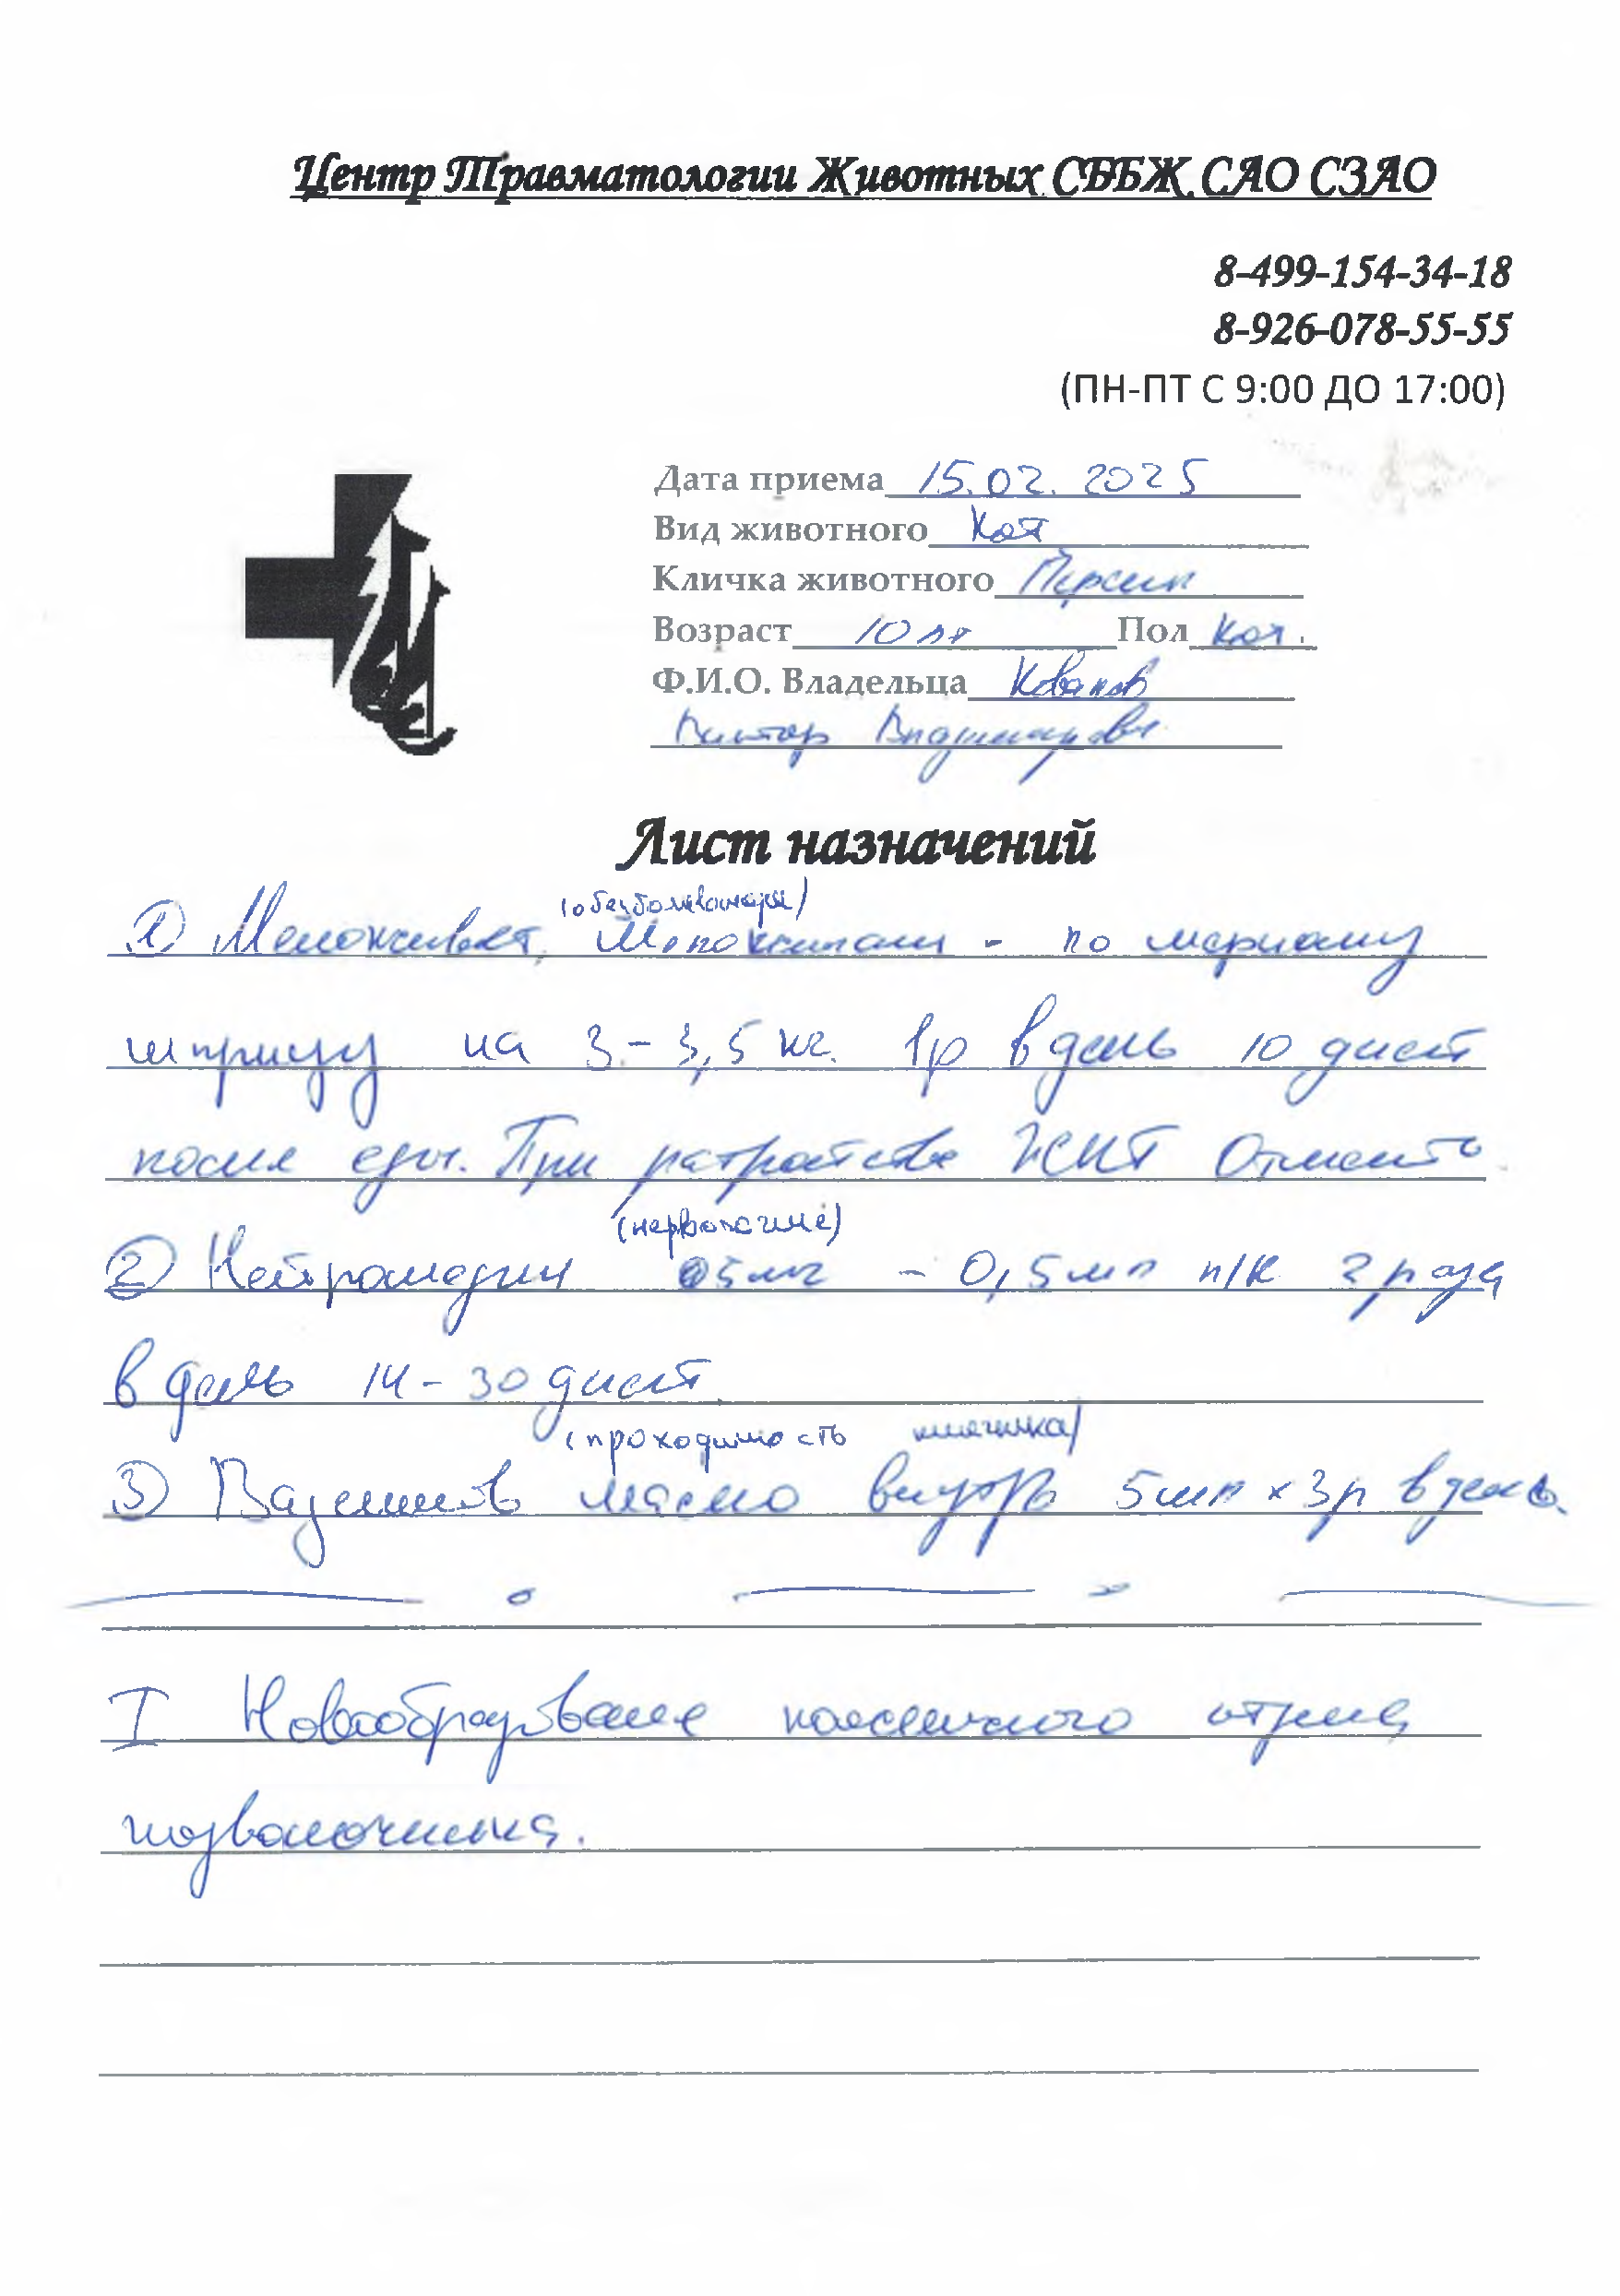 Центр Травматологии Животных СББЖ САО СЗАО
8-499-154-34-18
8-926-078-55-55
(ПН-ПТ С 9:00 ДО 17:00)
Дата приема 15.02.2025
Вид животного Кот
Кличка животного Персик
Возраст 10 лет Пол Кот.
Ф.И.О. Владельца
Виктор Владимирович
Лист назначений
(обезболивающие)
1) Мелоксивет, Мелоксикам - по мерному
шприцу на 3-3,5 кг. 1р в день 10 дней
после еды. При расстройстве ЖКТ Отменить.
(нервопатие)
2) Нейромидин 5мг - 0,5мл п/к 2 раза
в день 14-30 дней.
(проходимость кишечника)
3) Вазелиновое масло внутрь 5мл х 3р в день.
I Новообразование поясничного отдела
позвоночника.